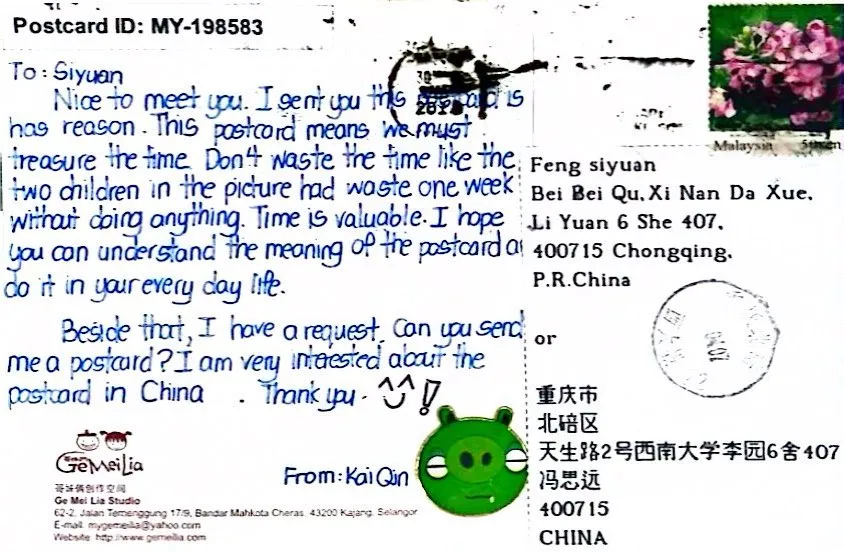 Postcard ID: MY-198583
To: Siyuan
Nice to meet you. I sent you this postcard is
has reason. This postcard means we must
treasure the time. Don't waste the time like the
two children in the picture had waste one week
without doing anything. Time is valuable. I hope
you can understand the meaning of the postcard a
do it in your every day life.
Beside that, I have a request. Can you send
me a postcard? I am very interested about the
postcard in China . Thank you. ^^!
From: Kai Qin
GeMeiLia
哥妹俩创作空间
Ge Mei Lia Studio
62-2, Jalan Temenggung 17/9, Bandar Mahkota Cheras, 43200 Kajang, Selangor
E-mail: mygemeilia@yahoo.com
Website: http://www.gemeilia.com
Malaysia 5sen
Feng siyuan
Bei Bei Qu, Xi Nan Da Xue,
Li Yuan 6 She 407,
400715 Chongqing,
P.R.China
or
重庆市
北碚区
天生路2号西南大学李园6舍407
冯思远
400715
CHINA